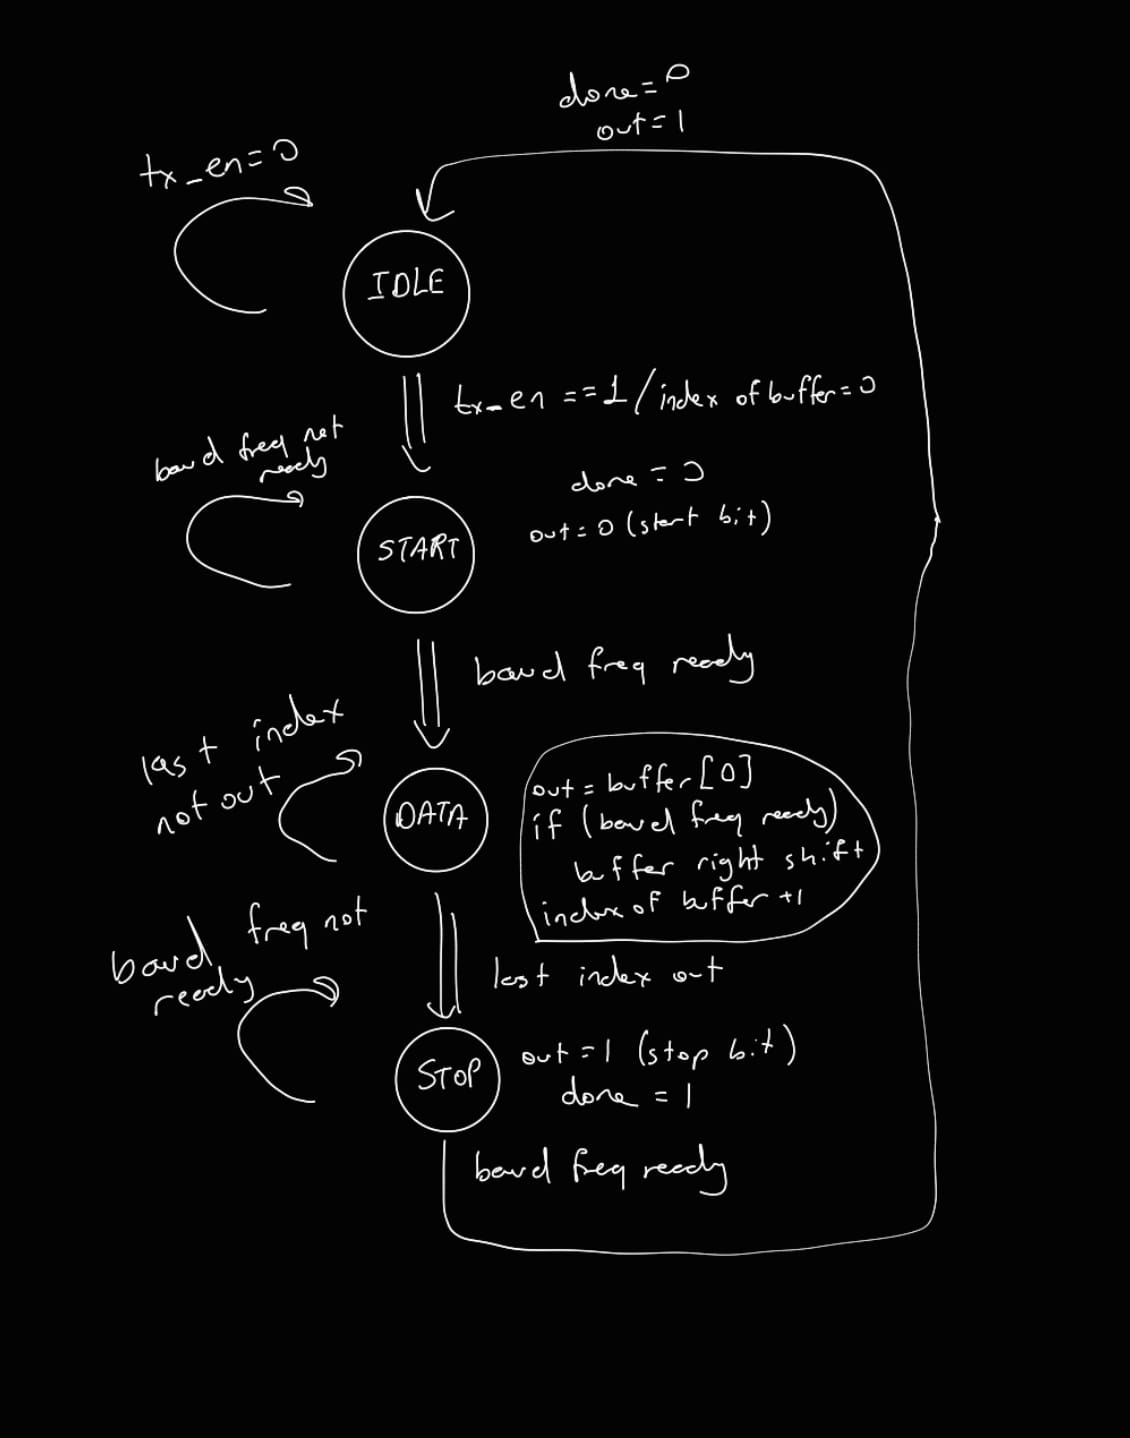 done = 0
out = 1
tx_en = 0
IDLE
tx_en == 1 / index of buffer = 0
baud freq not
ready
done = 0
out = 0 (start bit)
START
baud freq ready
last index
not out
DATA
out = buffer[0]
if (baud freq ready)
buffer right shift
index of buffer +1
baud freq not
ready
last index out
STOP
out = 1 (stop bit)
done = 1
baud freq ready